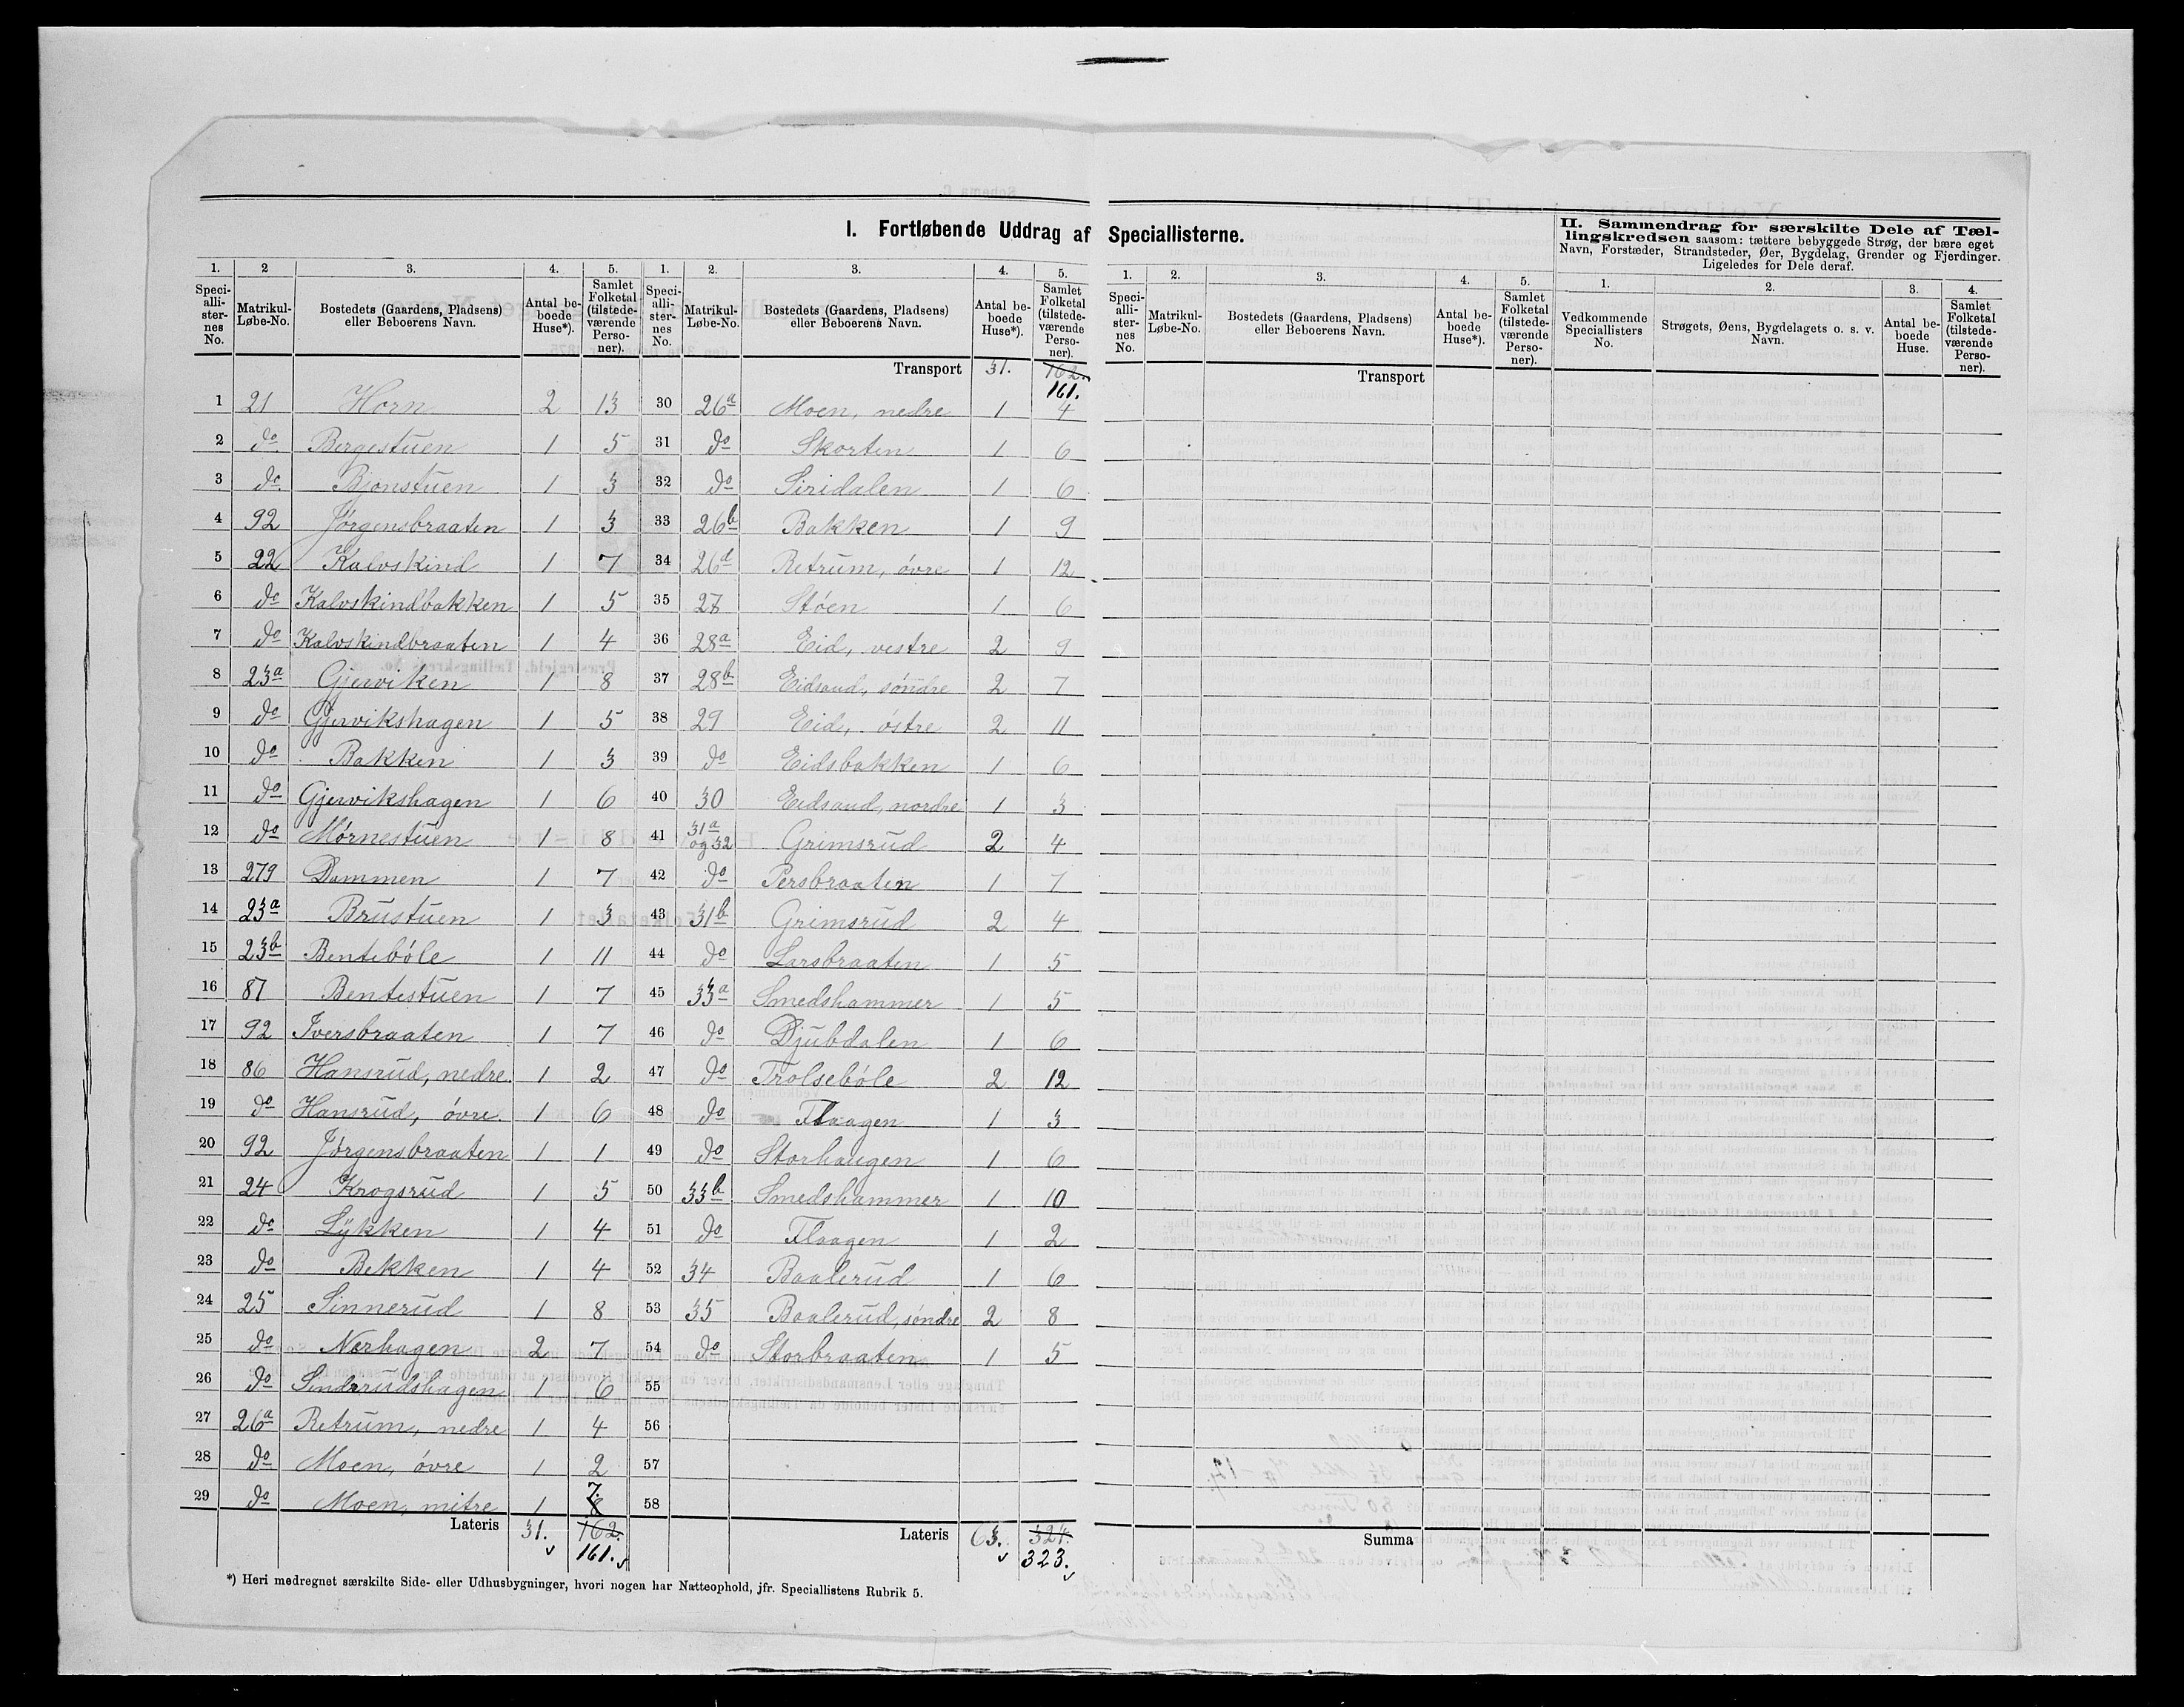 I. Fortløbende Uddrag af Speciallisterne.
II. Sammendrag for særskilte Dele af Tællingskredsen saasom: tættere bebyggede Strøg, der bære eget
Navn, Forstæder, Strandsteder, Øer, Bygdelag, Grender og Fjerdinger.
Ligeledes for Dele deraf.
1. 2 3. 4. 5. 1. 2. 3. 4. 5. 1. 2. 3. 4. 5. 1. 2. 3. 4.
Speciallisternes No. Matrikul-Løbe-No. Bostedets (Gaardens, Pladsens) eller Beboerens Navn. Antal beboede Huse*). Samlet Folketal (tilstedeværende Personer).
Speciallisternes No. Matrikul-Løbe-No. Bostedets (Gaardens, Pladsens) eller Beboerens Navn. Antal beboede Huse*). Samlet Folketal (tilstedeværende Personer).
Speciallisternes No. Matrikul-Løbe-No. Bostedets (Gaardens, Pladsens) eller Beboerens Navn. Antal beboede Huse*). Samlet Folketal (tilstedeværende Personer).
Vedkommende Speciallisters No. Strøgets, Øens, Bygdelagets o. s. v. Navn. Antal beboede Huse. Samlet Folketal (tilstedeværende Personer).
1 21 Horn 2 13
2 do Bergestuen 1 5
3 do Bjonstuen 1 3
4 92 Jørgensbraaten 1 3
5 22 Kalvskind 1 7
6 do Kalvskindbakken 1 5
7 do Kalvskindbraaten 1 4
8 23a Gjerviken 1 8
9 do Gjervikshagen 1 5
10 do Bakken 1 3
11 do Gjervikshagen 1 6
12 do Mørnestuen 1 8
13 279 Dammen 1 7
14 23a Brustuen 1 3
15 23b Bentebøle 1 11
16 87 Bentestuen 1 7
17 92 Iversbraaten 1 7
18 86 Hansrud, nedre 1 2
19 do Hansrud, øvre 1 6
20 92 Jørgensbraaten 1 1
21 24 Krogsrud 1 5
22 do Lykken 1 4
23 do Bekken 1 4
24 25 Sinnerud 1 8
25 do Nærhagen 2 7
26 do Sinderudshagen 1 6
27 26a Retrum, nedre 1 4
28 do Moen, øvre 1 2
29 do Moen, mitre 1 8 7.
Lateris 31. 162. 161.
Transport 31. 162. 161.
30 26a Moen, nedre 1 4
31 do Skorten 1 6
32 do Siridalen 1 6
33 26b Bakken 1 9
34 26d Retrum, øvre 1 12
35 27 Støen 1 6
36 28a Eid, vestre 2 9
37 28b Eidsaud, søndre 2 7
38 29 Eid, østre 2 11
39 do Eidsbakken 1 6
40 30 Eidsaud, nordre 1 3
41 31a og 32 Grimsrud 2 4
42 do Persbraaten 1 7
43 31b Grimsrud 2 4
44 do Larsbraaten 1 5
45 33a Smedshammer 1 5
46 do Djubdalen 1 6
47 do Trolsebøle 2 12
48 do Flaagen 1 3
49 do Storhaugen 1 6
50 33b Smedshammer 1 10
51 do Flaagen 1 2
52 34 Baalerud 1 6
53 35 Baalerud, søndre 2 8
54 do Storbraaten 1 5
55
56
57
58
Lateris 63. 324. 323.
Transport
Summa
*) Heri medregnet særskilte Side- eller Udhusbygninger, hvori nogen har Natteophold, jfr. Speciallistens Rubrik 5.